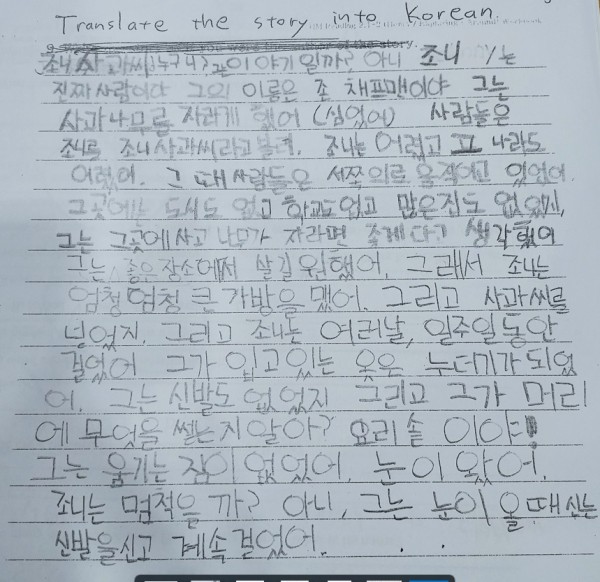 Translate the story into Korean.
조니 사과씨? 누구니? 꾸이야기일까? 아니 조니는
진짜사람이야 그의 이름은 존 채프맨이야 그는
사과나무를 자라게 했어 (심었어) 사람들은
조니를 조니사과씨라고 불러. 조니는 어렸고 그 나라도
어렸어. 그때사람들은 서쪽의로 움직이고 있었어
그곳에는 도시도 없고 학교도없고 많은집도 없었지,
그는 그곳에사고 나무가 자라면 좋게다고 생각했어
그는 좋은장소에서 살길 원했어. 그래서 조니는
엄청엄청 큰 가방을 맸어. 그리고 사과씨를
넣었지. 그리고 조니는 여러날, 일주일동안
걸었어 그가 입고있는 옷은 누더기가 되었
어. 그는 신발도 없었지 그리고 그가 머리
에 무엇을 썼는지알아? 요리솥 이야!
그는 움기는 짐이 없었어. 눈이 왔어.
조니는 멈척을까? 아니, 그는 눈이 올때신는
신발을신고 계속걸었어.